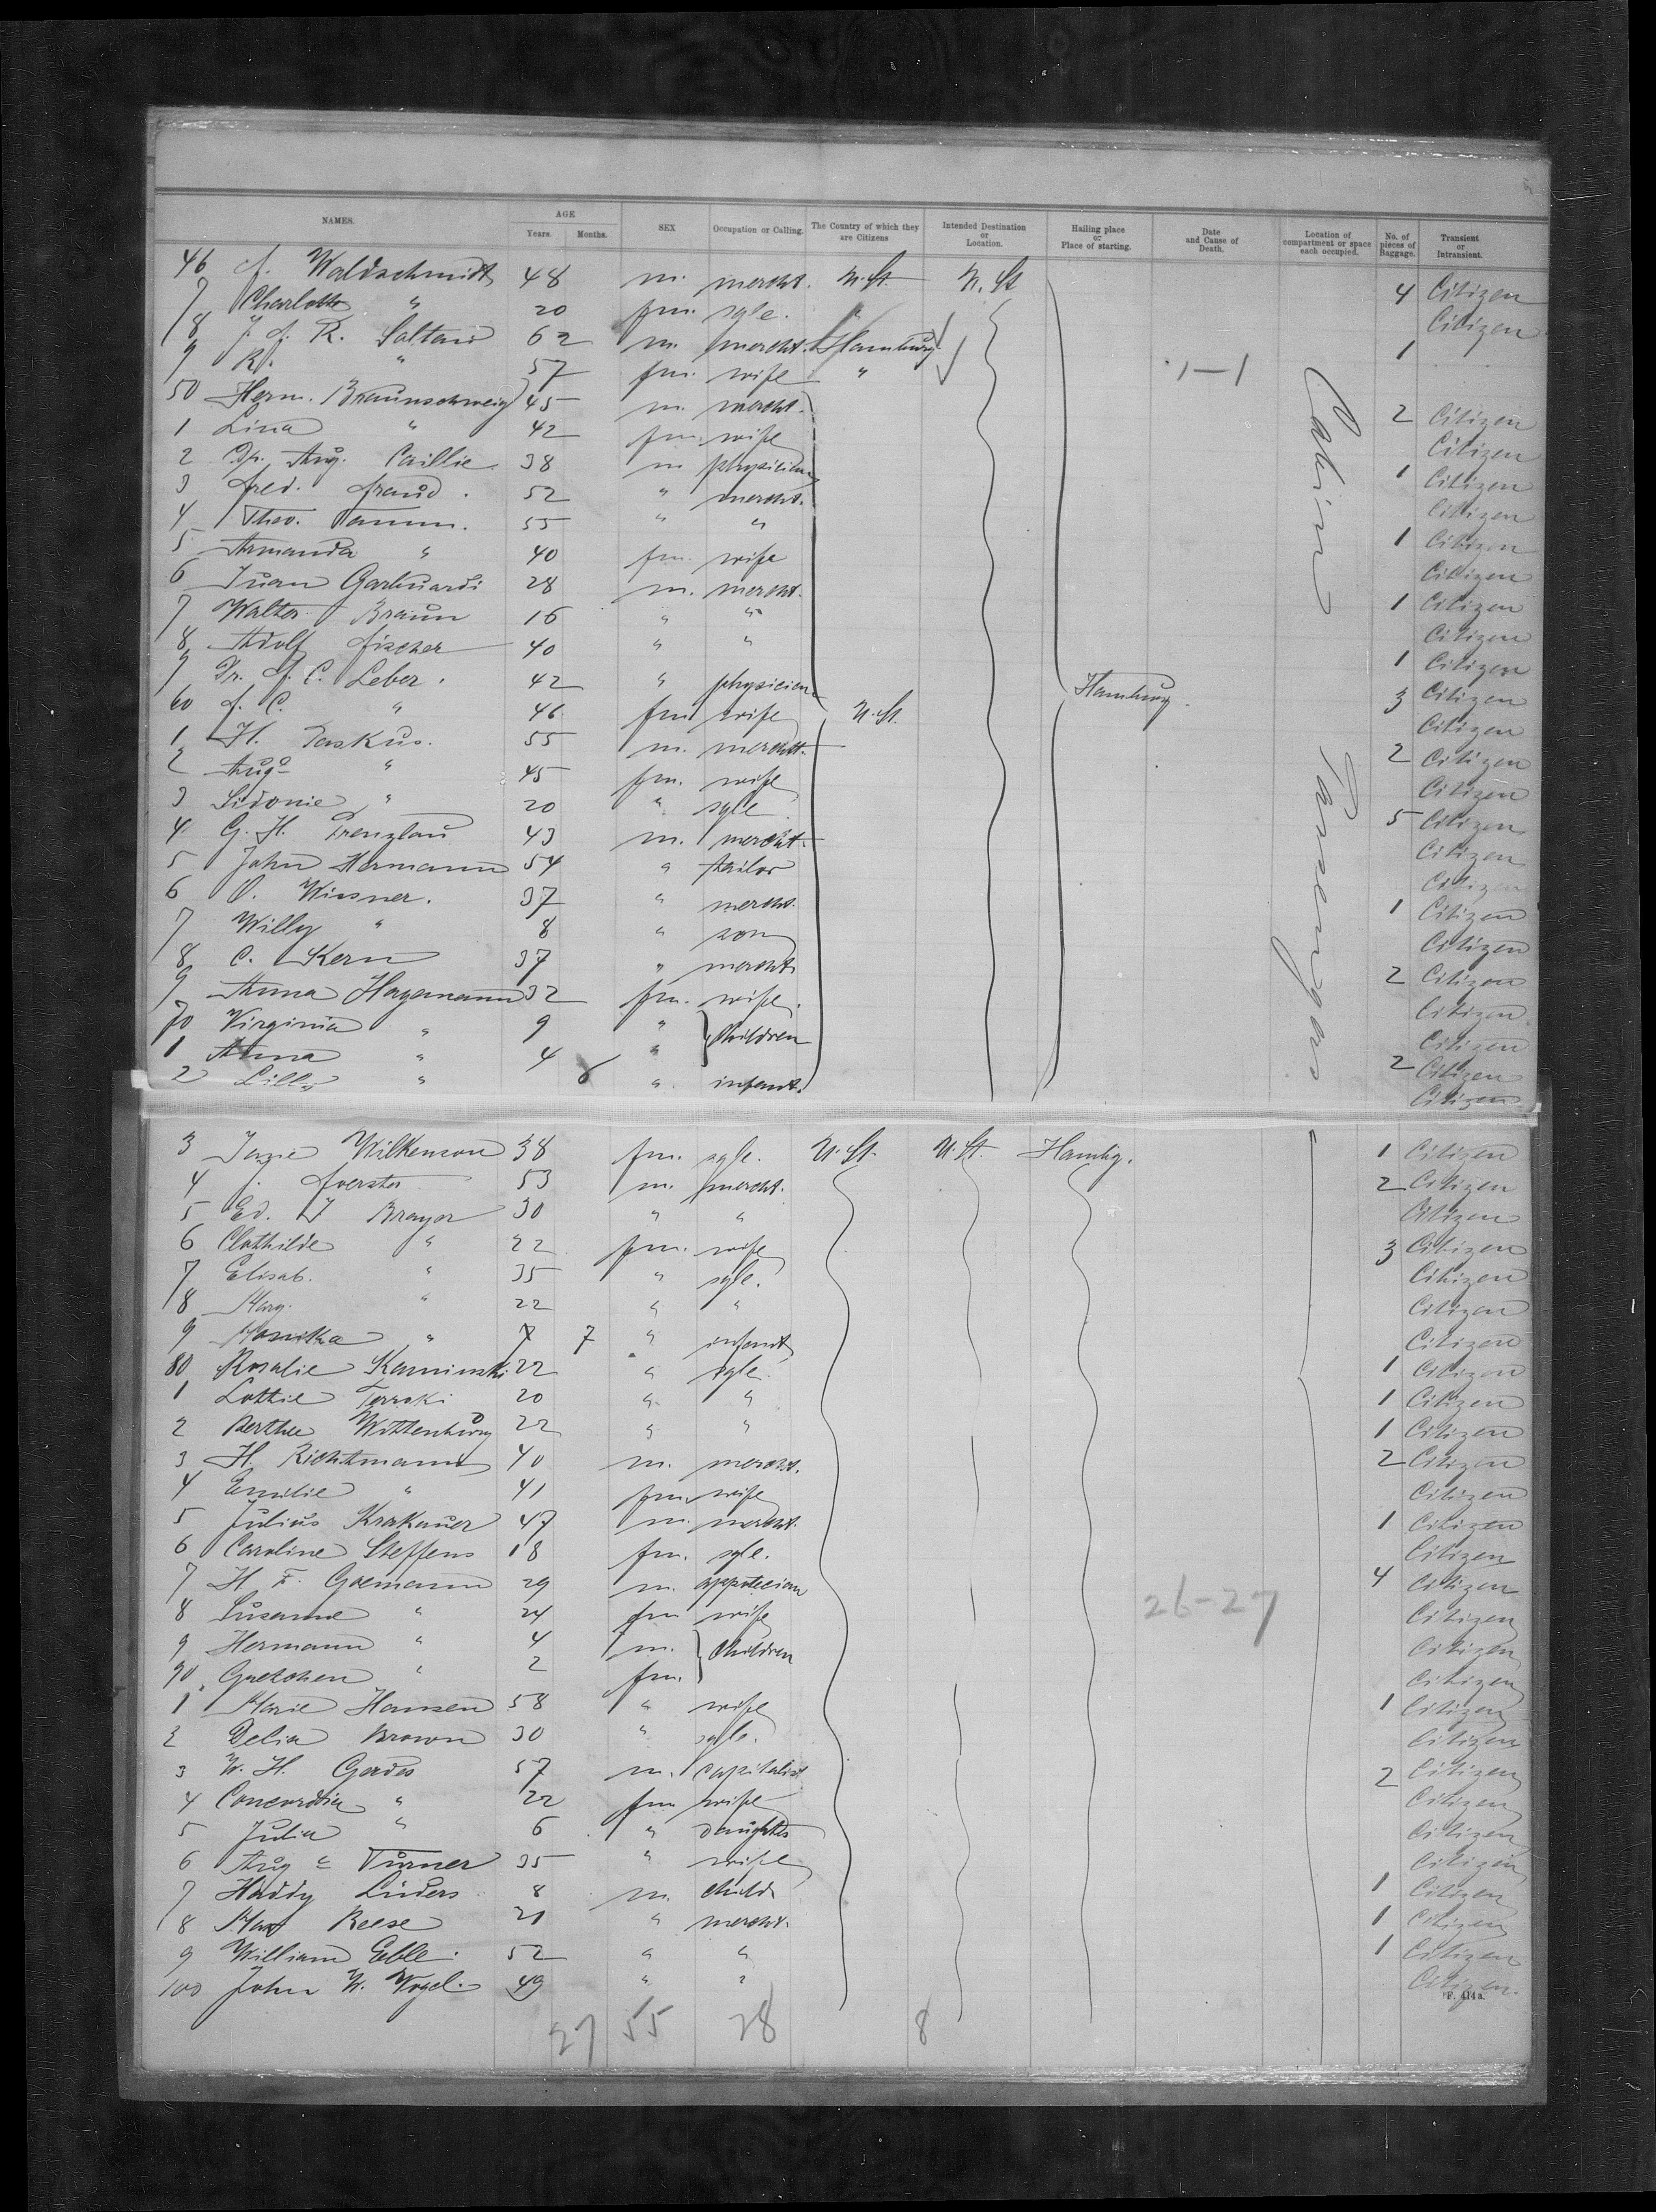 NAMES. AGE Years. Months. SEX Occupation or Calling. The Country of which they are Citizens Intended Destination or Location. Hailing place or Place of starting. Date and Cause of Death. Location of compartment or space each occupied. No. of pieces of Baggage. Transient or Intransient.
46 J. Waldschmidt 48 m. mercht. U. St. U. St 4 Citizen
7 Charlotte " 20 fm. sgle. " Citizen
8 J. J. R. 62 m mercht. Hamburg 1
9 R. " 57 fm. wife " 1-1
50 Herm. Braunschweig 45 m. mercht. 2 Citizen
1 Lina " 42 fm. wife Citizen
2 Dr. Aug. Caillie 38 m physician 1 Citizen
3 Fred. 52 " mercht. Citizen
4 Theo. Tamm. 55 " " 1 Citizen
5 Armanda " 40 fm. wife Citizen
6 Juan 28 m. mercht. 1 Citizen
7 Walter Braun 16 " " Citizen
8 Adolf Fischer 40 " " 1 Citizen
9 Dr. F. C. Leber. 42 " physician Hamburg. 3 Citizen
60 F. C. " 46 fm wife U. St. Citizen
1 H. Paskus. 55 m. mercht. 2 Citizen
2 Aug. " 45 fm. wife Citizen
3 Sidonie " 20 " sgle 5 Citizen
4 G. H. Prenzlau 43 m. mercht. Citizen
5 John Hermann 54 " tailor Citizen
6 O. Wiesner. 37 " mercht. 1 Citizen
7 Willy " 8 " son Citizen
8 C. Kern 37 " mercht 2 Citizen
9 Anna Hagemann 32 fm. wife. Citizen
70 Virginia " 9 " Children Citizen
1 Anna " 4 " 2 Citizen
2 Lilly " 8 " infant. Citizen
Cabin Passengers
3 Jane Wilkenson 38 fm. sgle. U. St. U. St. Hambg. 1 Citizen
4 J. Foerster 53 m. mercht. 2 Citizen
5 Ed. J Breyer 30 " " Citizen
6 Clothilde " 22 fm. wife 3 Citizen
7 Elisab. " 35 " sgle. Citizen
8 Marg. " 22 " " Citizen
9 Monika " 7 7 " infant Citizen
80 Rosalie Kaminski 22 " sgle. 1 Citizen
1 Lottie 20 " " 1 Citizen
2 Berthe Wittenburg 22 " " 1 Citizen
3 H. Richtmann 40 m. mercht. 2 Citizen
4 Emilie " 41 fm. wife Citizen
5 Julius Krakauer 47 m. mercht. 1 Citizen
6 Caroline Steffens 18 fm. sgle. Citizen
7 H. F. Goemann 29 m. 4 Citizen
8 Susanne " 24 fm wife 26-27 Citizen
9 Hermann " 4 m. Children Citizen
90 Gretchen " 2 fm. Citizen
1 Marie Hansen 58 " wife 1 Citizen
2 Delia Brown 30 " sgle. Citizen
3 W. H. Gerdes 57 m. capitalist 2 Citizen
4 Concordia " 22 fm wife Citizen
5 Julia " 6 " daughter Citizen
6 Aug e Turner 35 " wife Citizen
7 Haddy Lüders 8 m. child 1 Citizen
8 Max Reese 21 " mercht. 1 Citizen
9 William Eble. 52 " " 1 Citizen
100 John W. Vogel. 49 " " Citizen.
F. 414 a.
27 55 28 8